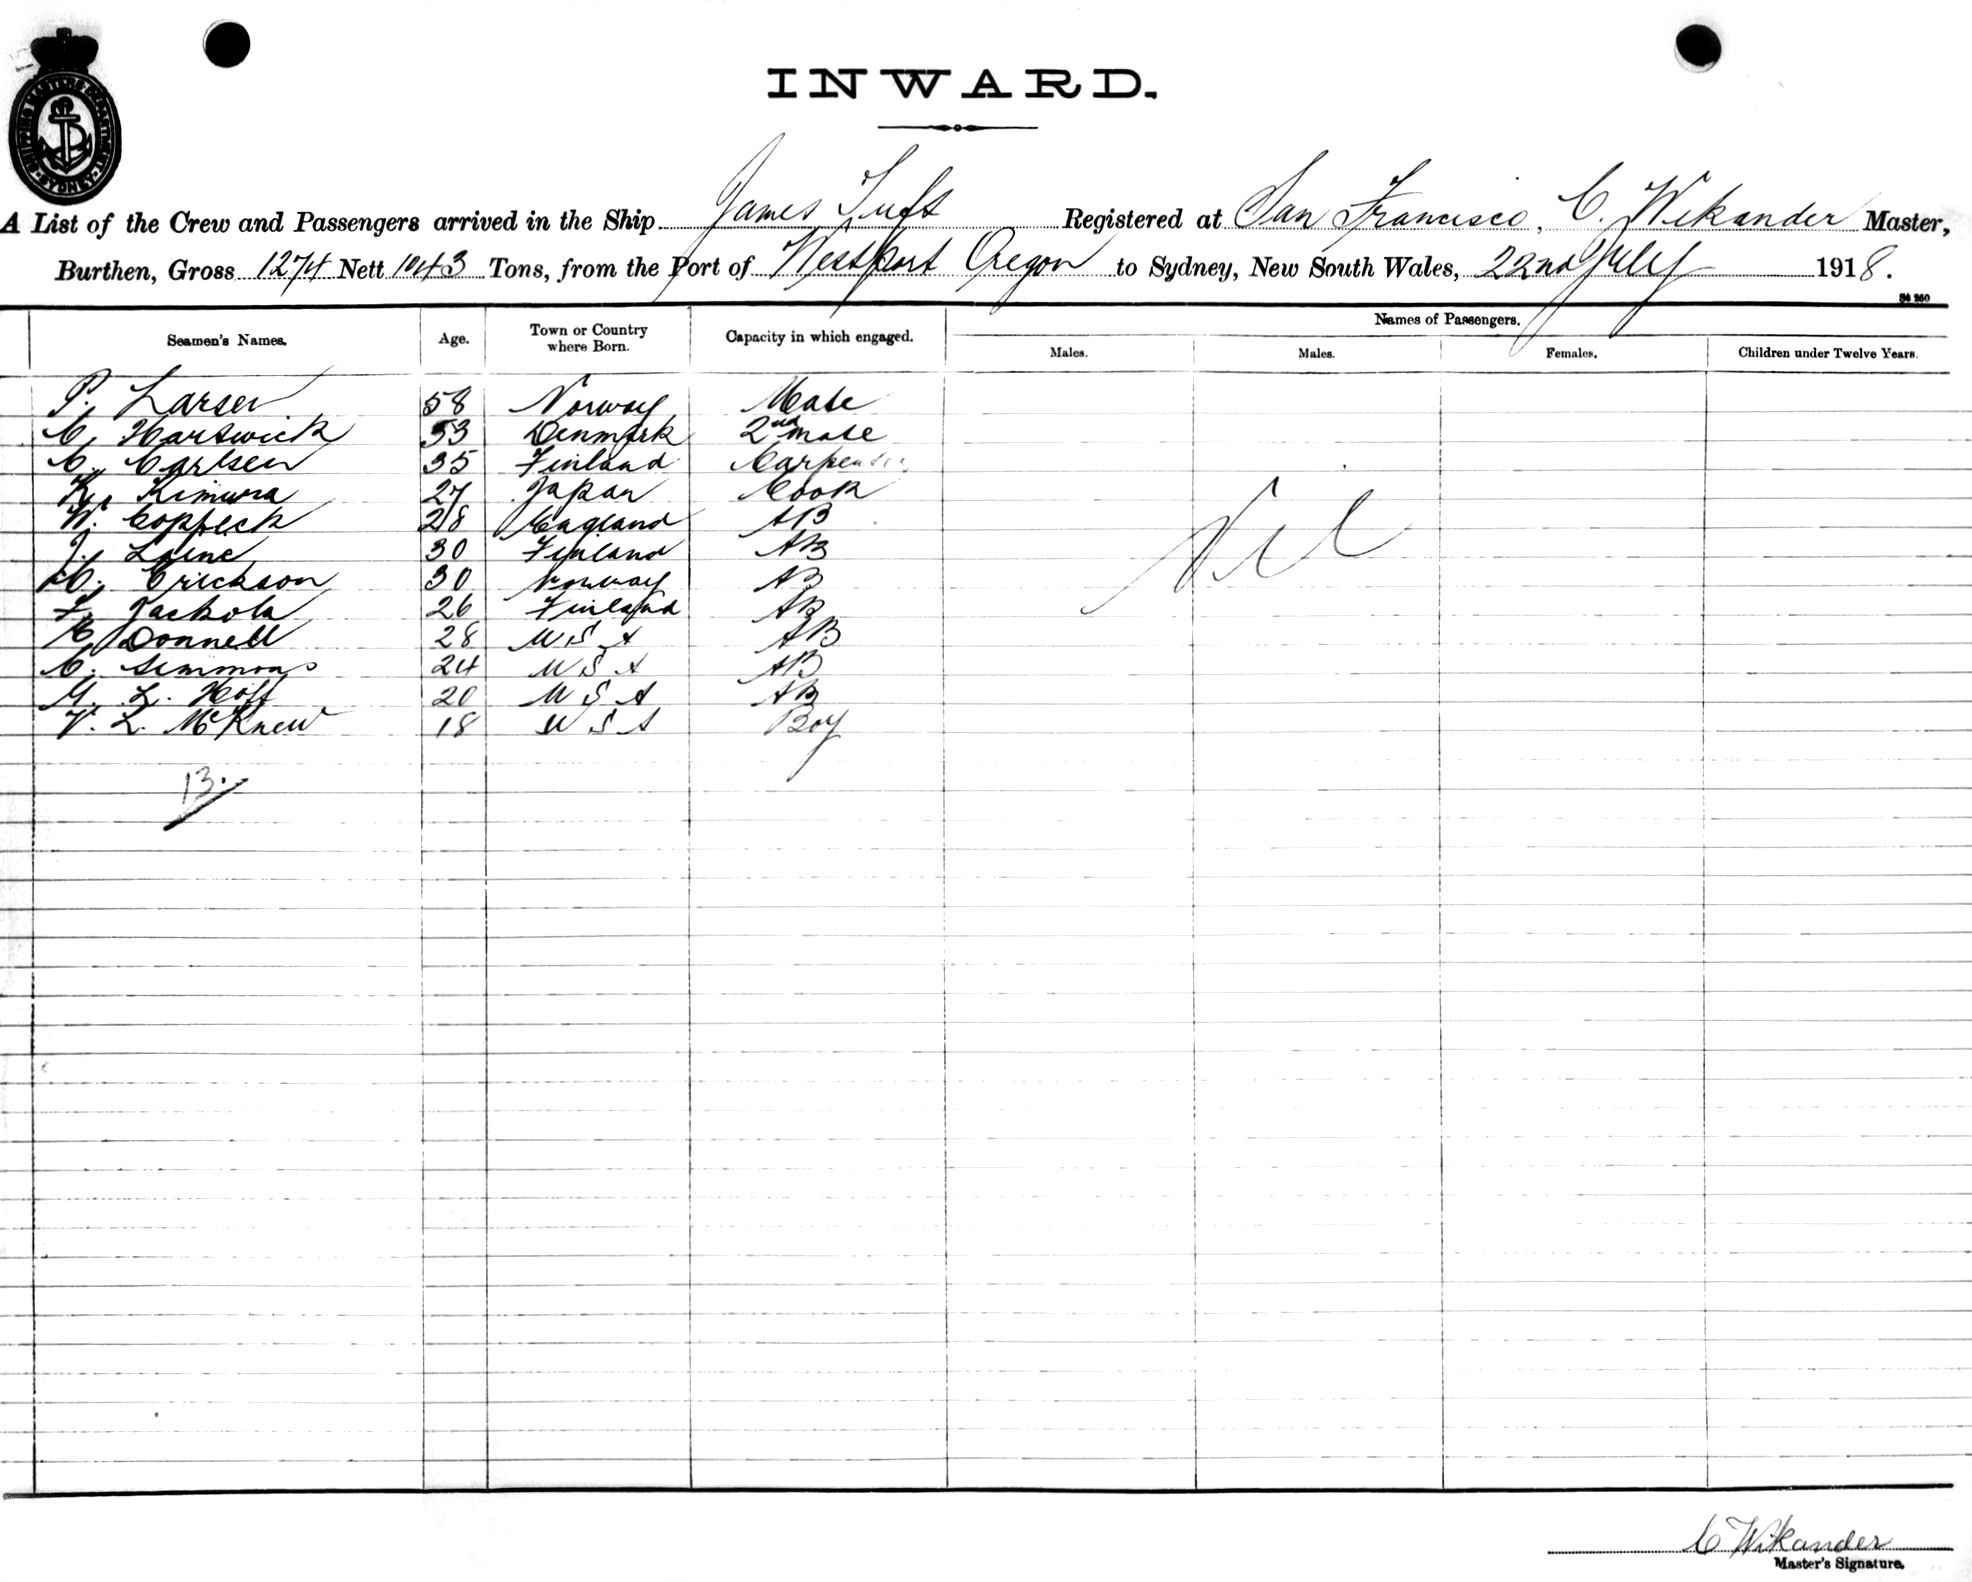 SHIPPING MASTERS DEPARTMENT SYDNEY
INWARD.
A List of the Crew and Passengers arrived in the Ship James Tuft Registered at San Francisco, C. Wikander Master,
Burthen, Gross 1274 Nett 1043 Tons, from the Port of Westport Oregon to Sydney, New South Wales, 22nd July 1918.
Names of Passengers.
Seamen's Names. Age. Town or Country where Born. Capacity in which engaged. Males. Males. Females. Children under Twelve Years.
P. Larsen 58 Norway Mate
C. Hartwick 53 Denmark 2nd mate
C. Carlsen 35 Finland Carpenter
K. Kimura 27 Japan Cook
W. Coppeck 28 England AB
Nil
J. Laine 30 Finland AB
C. Erickson 30 Norway AB
F. Jackola 26 Finland AB
Donnell 28 USA AB
C. Simmons 24 USA AB
G. L. Hoff 20 USA AB
V. L. McKnew 18 USA Boy
13.
C Wikander
Master's Signature.